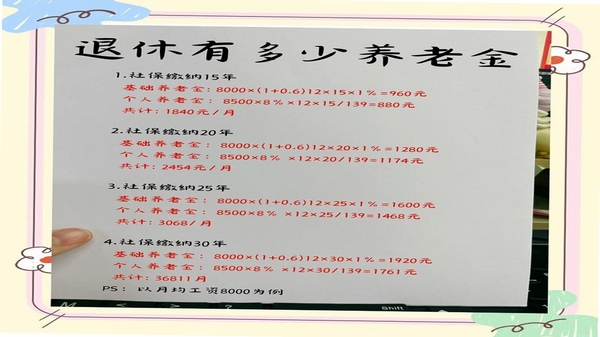 退休有多少养老金
1.社保缴纳15年
基础养老金: 8000×(1+0.6)12×15×1%=960元
个人养老金: 8500×8% ×12×15/139=880元
共计: 1840元/月
2.社保缴纳20年
基础养老金: 8000×(1+0.6)12×20×1%=1280元
个人养老金: 8500×8% ×12×20/139=1174元
共计: 2454元/月
3.社保缴纳25年
基础养老金: 8000×(1+0.6)12×25×1%=1600元
个人养老金: 8500×8% ×12×25/139=1468元
共计: 3068/月
4.社保缴纳30年
基础养老金: 8000×(1+0.6)12×30×1%=1920元
个人养老金: 8500×8% ×12×30/139=1761元
共计: 36811月
PS: 以月均工资8000为例
M < > ? Shift